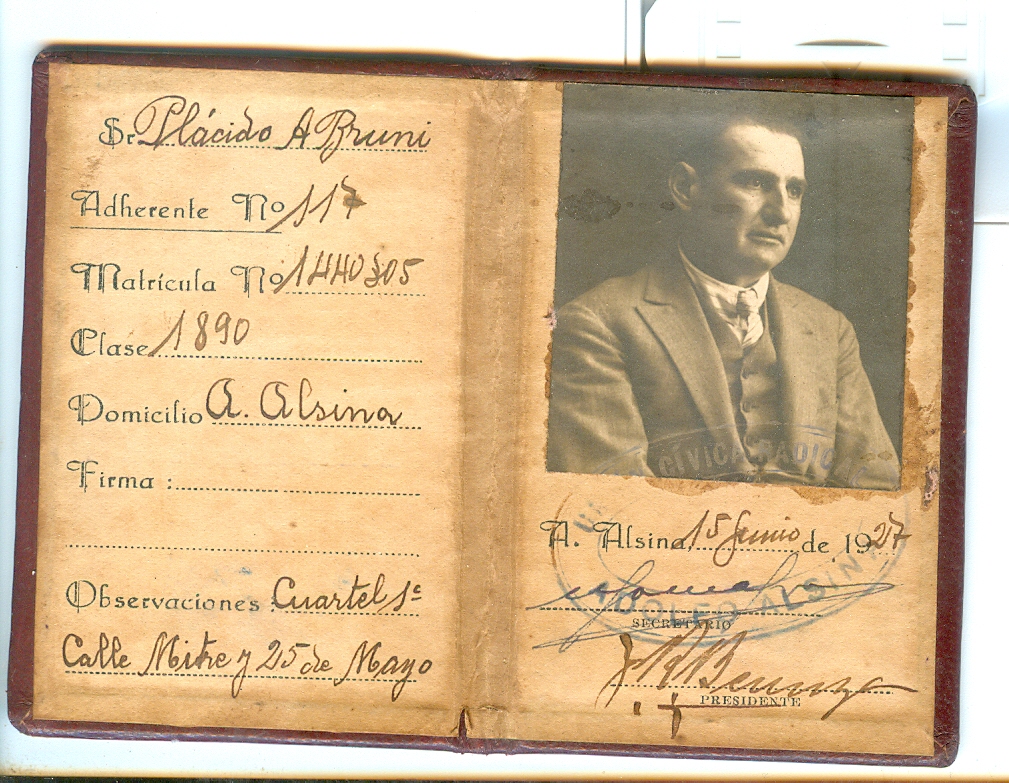 Sr. Plácido A Bruni
Adherente No 117
Matrícula No 1440305
Clase 1890
Domicilio A. Alsina
Firma :
Observaciones : Cuartel 1º
Calle Mitre y 25 de Mayo
CÍVICA RADICAL
A. Alsina, 15 Junio de 1927
ADOLFO ALSINA
SECRETARIO
PRESIDENTE